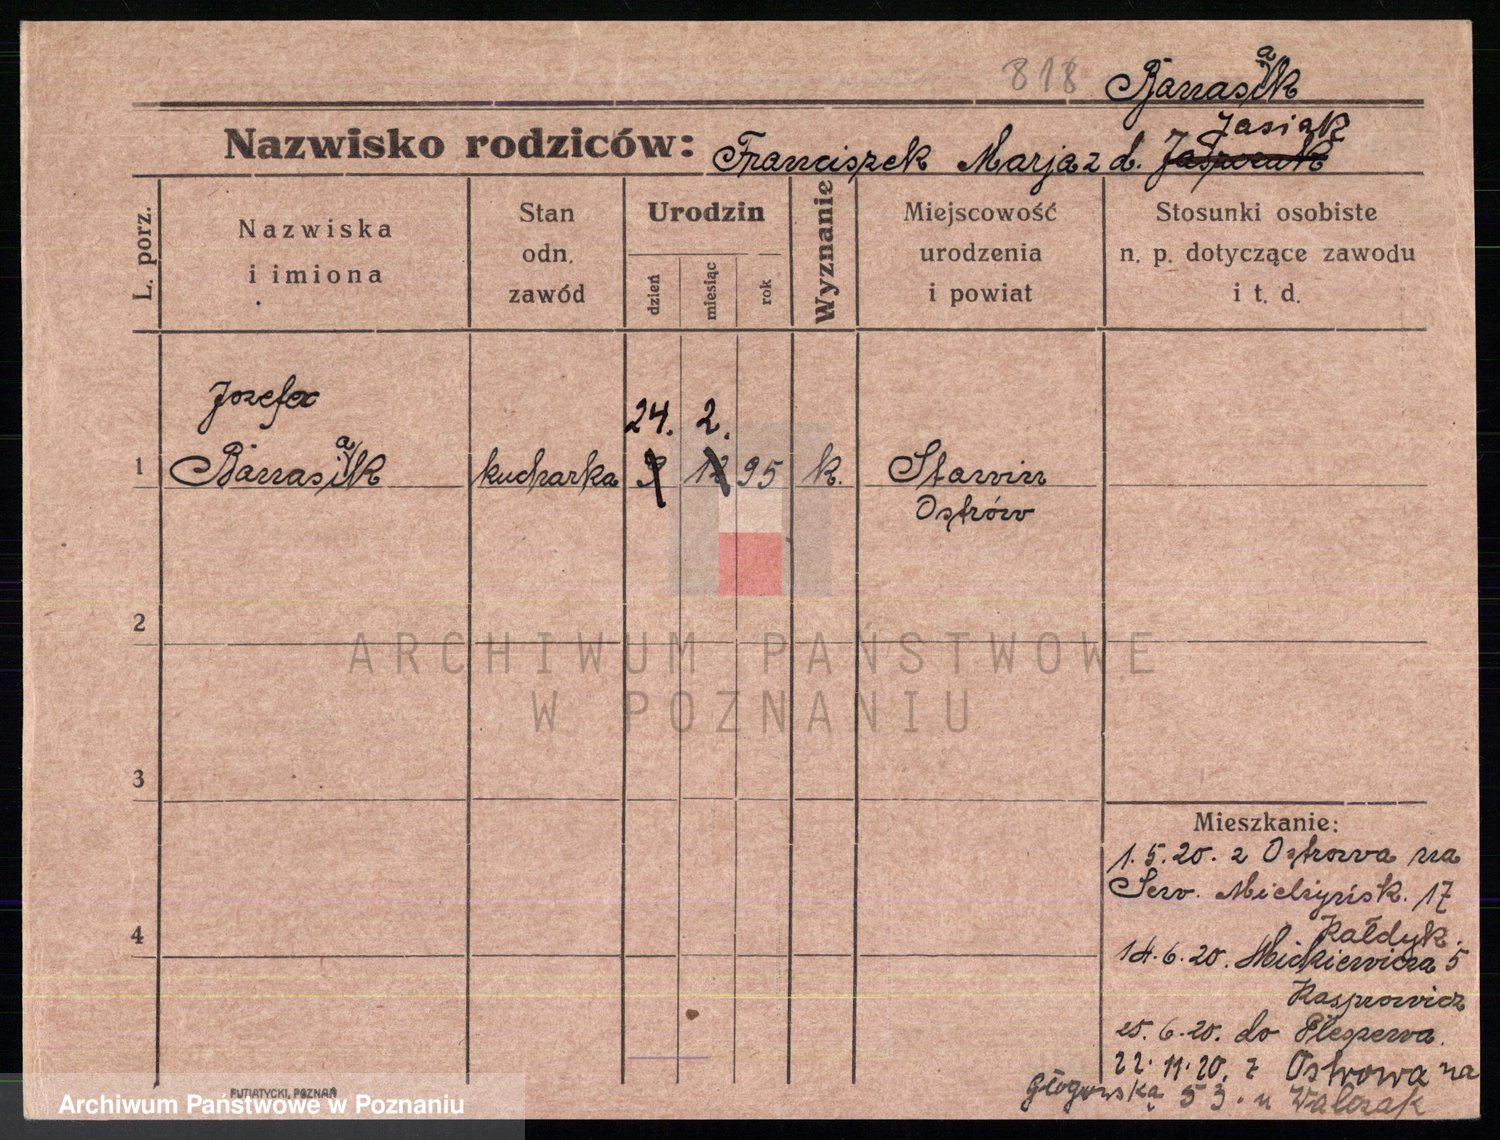 818 Banasiak
Nazwisko rodziców: Franciszek Marja z d. Jasiak
L. porz.
Nazwiska
i imiona
Stan
odn.
zawód
Urodzin
dzień
miesiąc
rok
Wyznanie
Miejscowość
urodzenia
i powiat
Stosunki osobiste
n. p. dotyczące zawodu
i t. d.
Józefa
24. 2.
1 Banasiak kucharka 95 k.
Ostrów
2
3
4
Mieszkanie:
1.5.20. z Ostrowa na
Serv. Mielżyńsk. 17
Kałdyk.
14.6.20. Mickiewicza 5
Kasprowicz
25.6.20. do Pleszewa.
22.11.20. z Ostrowa na
Głogowską 53. u Walczak
PUTIATYCKI, POZNAŃ
ARCHIWUM PAŃSTWOWE
W POZNANIU
Archiwum Państwowe w Poznaniu